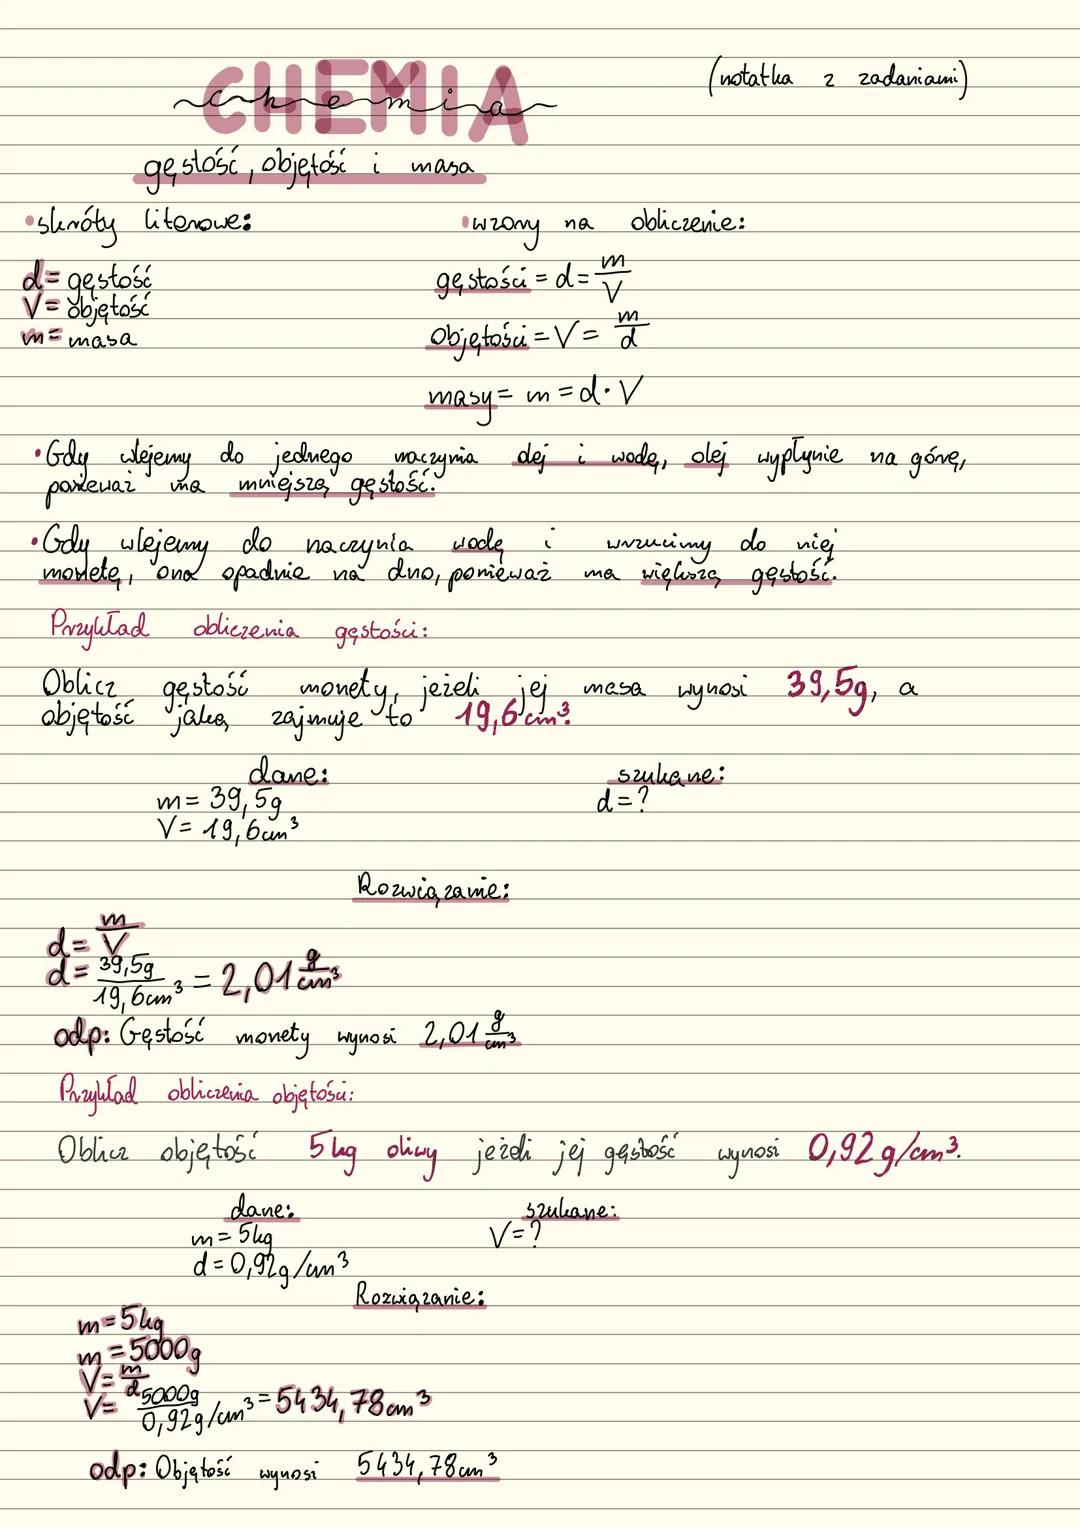 CHEMIA
chemia
(notatka z zadaniami)
gęstość, objętość i masa
•skróty literowe:
•wzory na obliczenie:
d= gęstość
V= objętość
m= masa
gęstości = d = m/V
Objętości = V = m/d
masy = m = d·V
•Gdy wlejemy do jednego naczynia olej i wodę, olej wypłynie na górę,
ponieważ ma mniejszą gęstość.
•Gdy wlejemy do naczynia wodę i wrzucimy do niej
monetę, ona opadnie na dno, ponieważ ma większą gęstość.
Przykład obliczenia gęstości:
Oblicz gęstość monety, jeżeli jej masa wynosi 39,5g, a
objętość jaką zajmuje to 19,6cm³.
dane:
szukane:
m= 39,5g
d=?
V= 19,6cm³
Rozwiązanie:
d= m/V
d= 39,5g/19,6cm³ = 2,01 g/cm³
odp: Gęstość monety wynosi 2,01 g/cm³
Przykład obliczenia objętości:
Oblicz objętość 5kg oliwy jeżeli jej gęstość wynosi 0,92g/cm³.
dane:
szukane:
m=5kg
V=?
d=0,92g/cm³
Rozwiązanie:
m=5kg
m=5000g
V= m/d
V= 5000g/0,92g/cm³ = 5434,78cm³
odp: Objętość wynosi 5434,78cm³